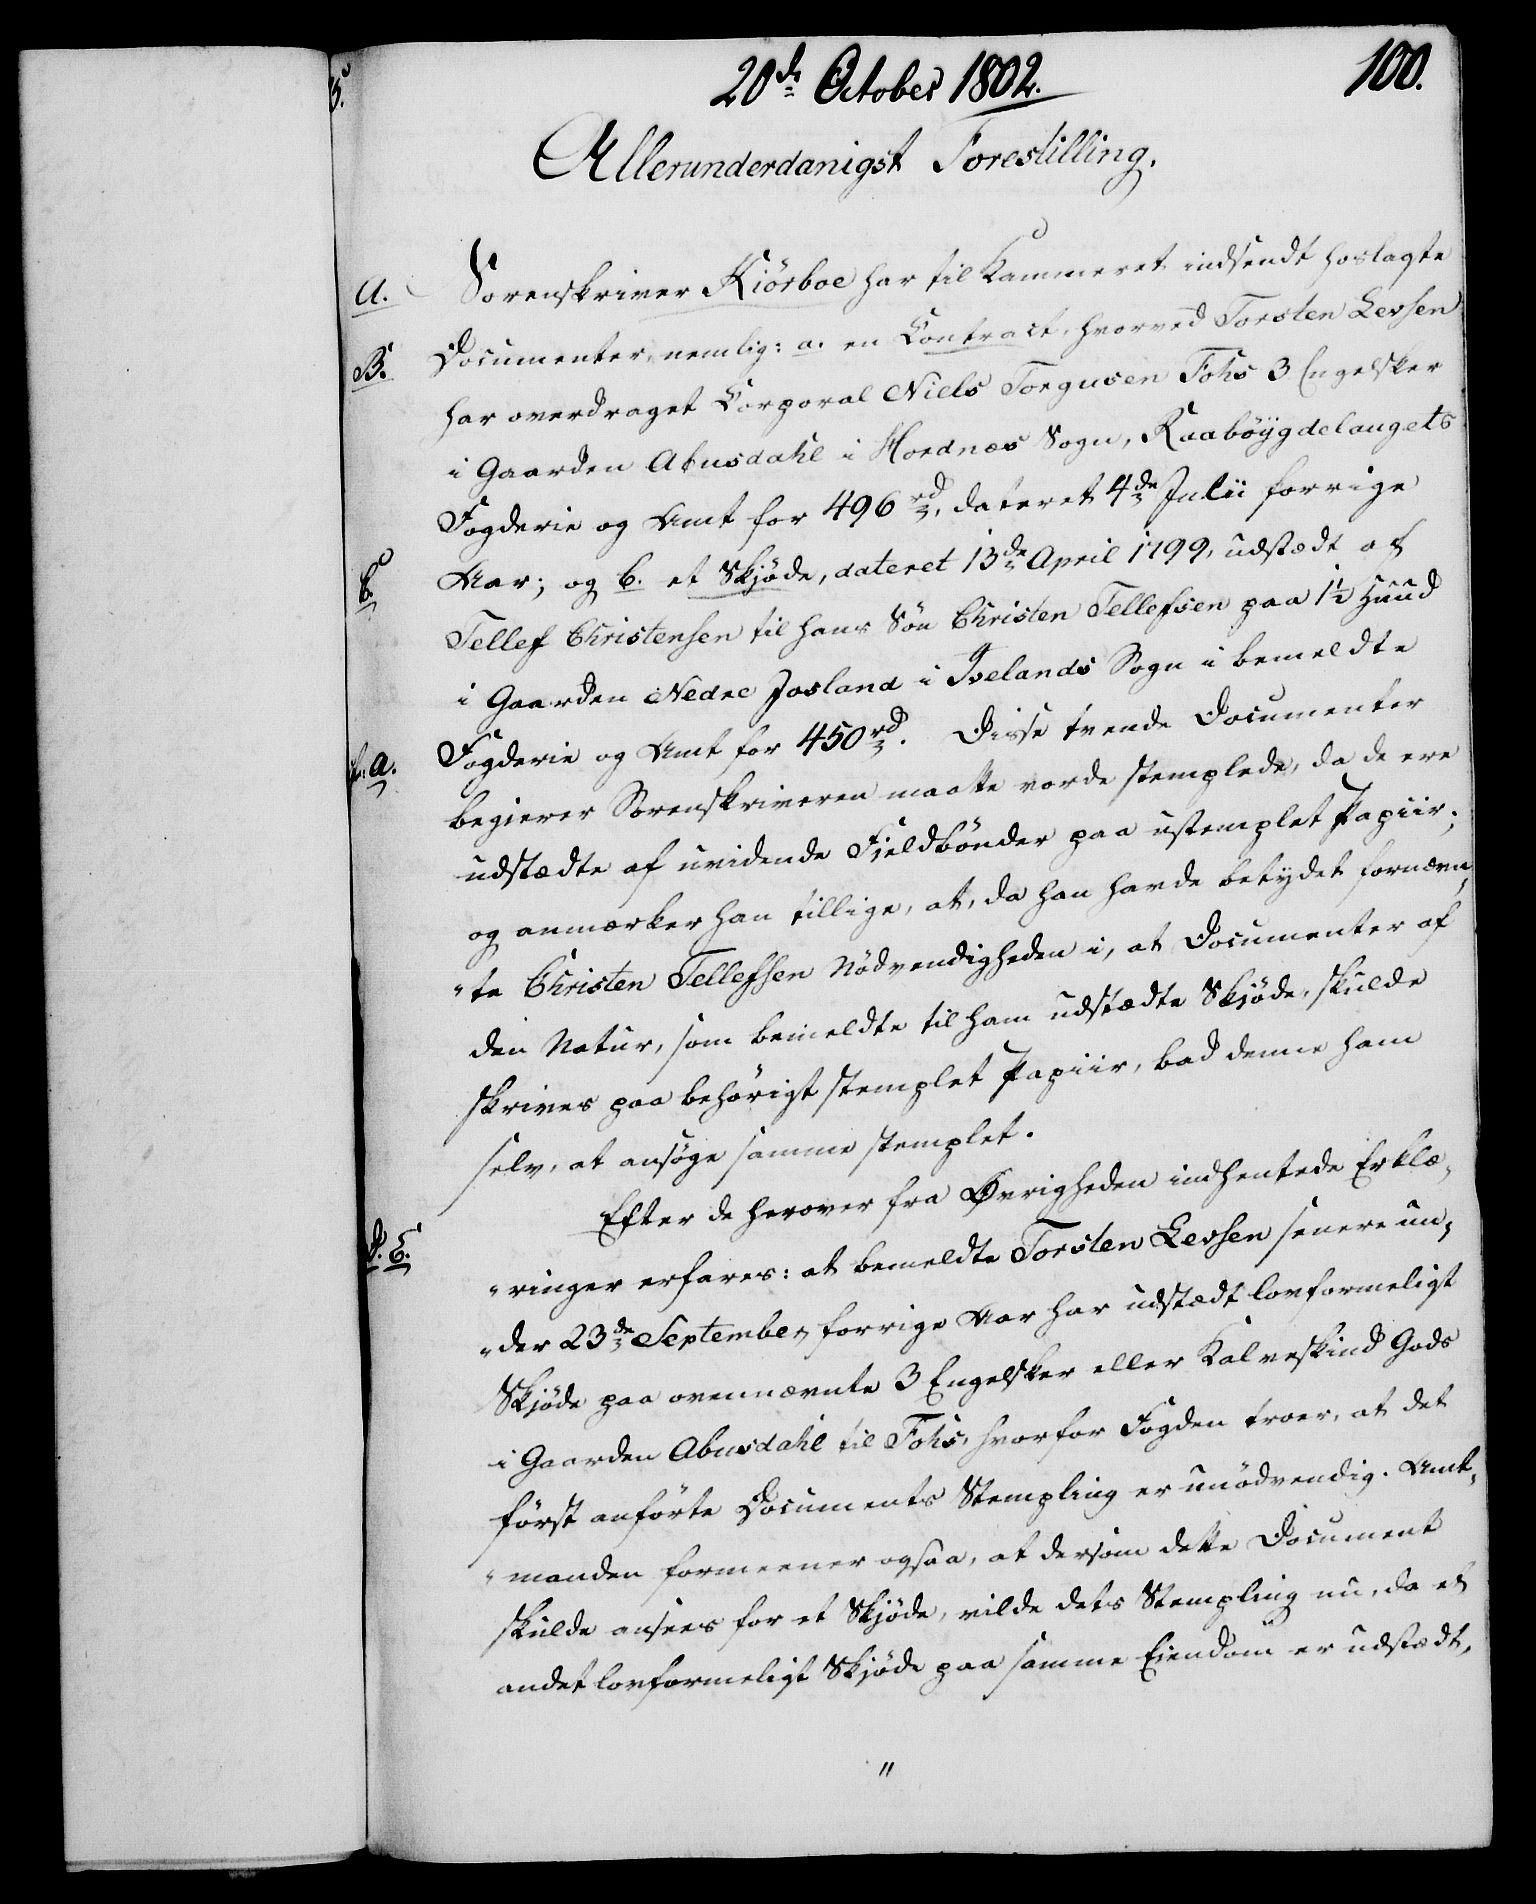 20de October 1802.
100.
Allerunderdanigst Forestilling.
A. Sorenskriver Kiörboe har til Kammeret indsendt hoslagte
B. Documenter, nemlig: a. en Contract, hvorved Torsten Levsen
har overdraget Corporal Niels Torgusen Fohs 3 Engelsker
i Gaarden Abusdahl i Hordnæs Sogn, Raabøygdelaugets
Fogderie og Amt for 496 rd, dateret 4de Julii forrige
C. Aar; og b. et Skjøde, dateret 13de April 1799, udstædt af
Tellef Christensen til hans Søn Christen Tellefsen paa 1½ Huud
i Gaarden Nedre Josland i Ivelands Sogn i bemeldte
a. Fogderie og Amt for 450 rd. Disse tvende Documenter
begierer Sorenskriveren maatte vorde stemplede, da de ere
udstædte af uvidende Fieldbønder paa ustemplet Papiir;
og anmærker han tillige, at, da han havde betydet fornævn„
„te Christen Tellefsen Nødvendigheden i, at Documenter af
den Natur, som bemeldte til ham udstædte Skjøde, skulde
skrives paa behørigt stemplet Papiir, bad denne ham
selv, at ansøge samme stemplet.
Efter de herover fra Øvrigheden indhentede Erklæ„
D. E. „ringer erfares: at bemeldte Torsten Levsen senere un„
„der 23de September forrige Aar har udstædt lovformeligt
Skjøde paa ovennævnte 3 Engelsker eller Kalveskind Gods
i Gaarden Abusdahl til Fohs, hvorfor Fogden troer, at det
først anførte Documents Stempling er unødvendig. Amt„
„manden formeener ogsaa, at dersom dette Document
skulde ansees for et Skjøde, vilde dets Stempling nu, da et
andet lovformeligt Skjøde paa samme Eiendom er udstædt,
"